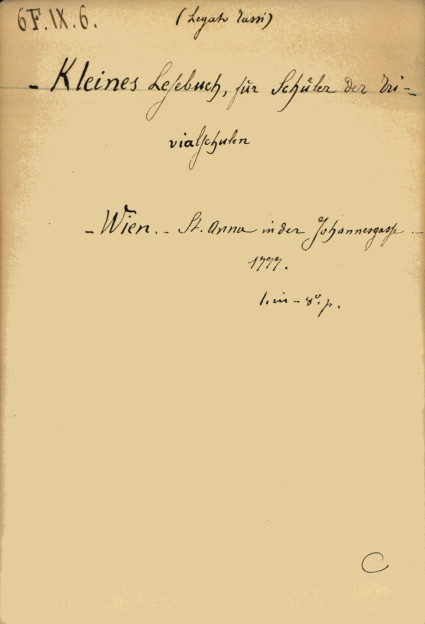 6F.IX.6.
(Legato Tassi)
- Kleines Lesebuch, für Schüler der Tri-
vialschulen
- Wien. - St. Anna in der Johannesgasse -
1777.
1. in - 8º. p.
C